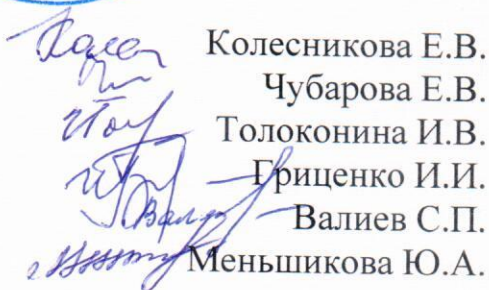 Колесникова Е.В.
Чубарова Е.В.
Толоконина И.В.
Гриценко И.И.
Валиев С.П.
Меньшикова Ю.А.